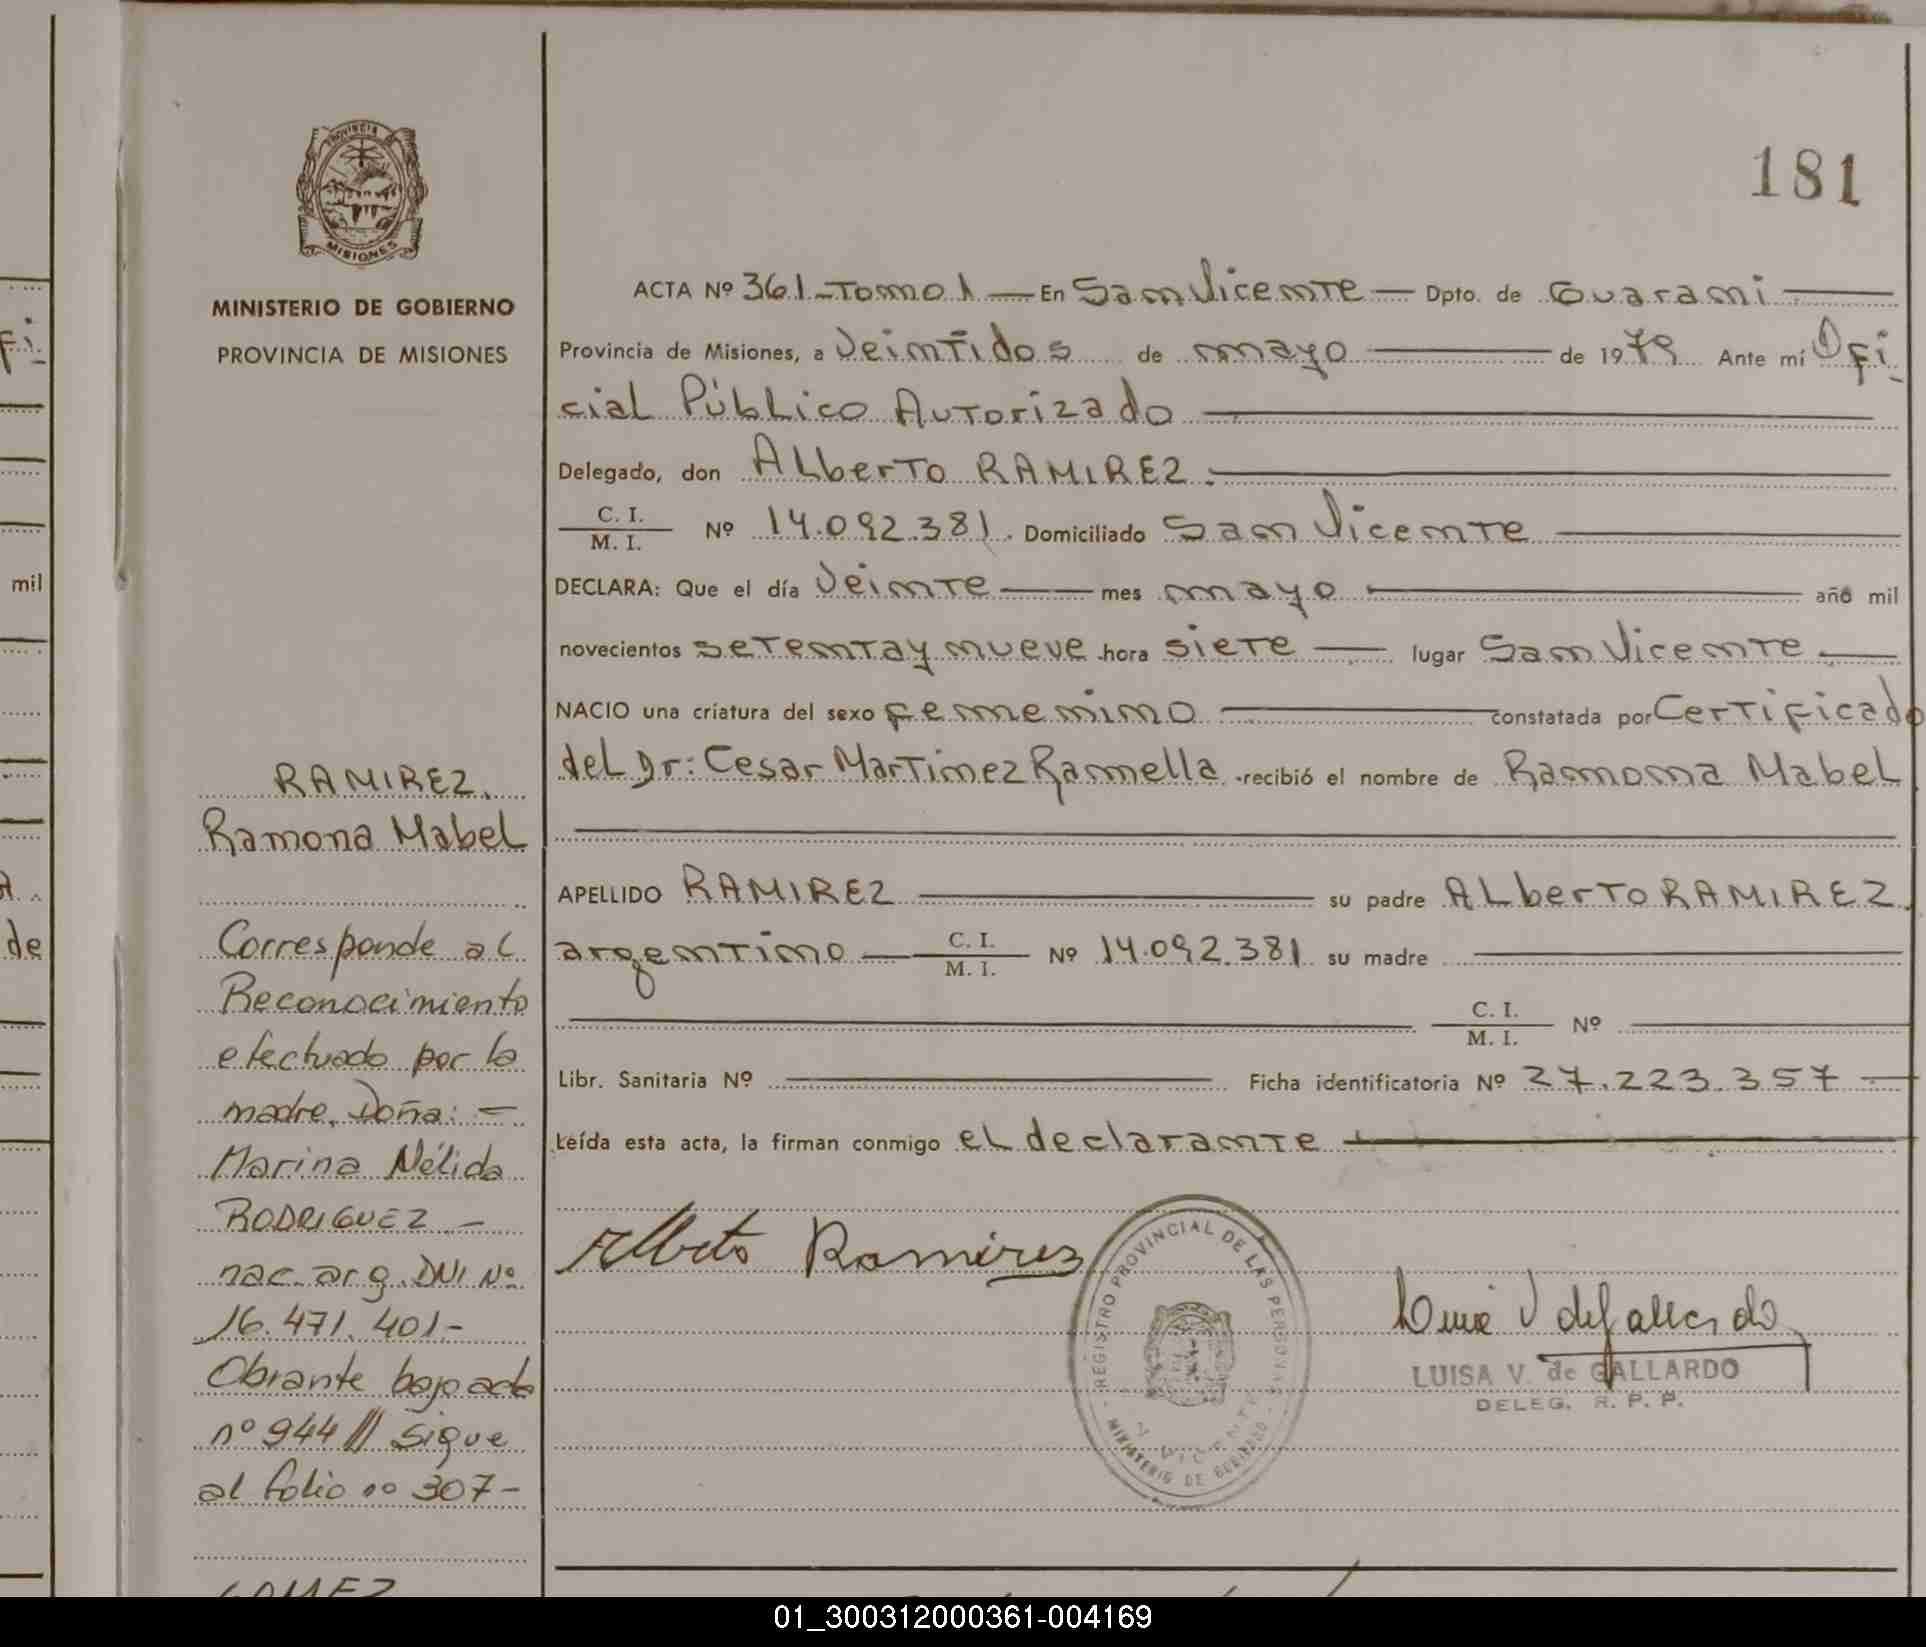 PROVINCIA DE
MISIONES
MINISTERIO DE GOBIERNO
PROVINCIA DE MISIONES
RAMIREZ.
Ramona Mabel
Corresponde al
Reconocimiento
efectuado por la
madre. Doña: -
Marina Nélida
RODRIGUEZ -
nac. arg. DNI Nº
16.471.401-
Obrante bajo acta
nº 944 /// Sigue
al folio nº 307-
181
ACTA Nº 361-Tomo 1 — En San Vicente — Dpto. de Guarani —
Provincia de Misiones, a Veintidos de mayo — de 1979 Ante mí Ofi
cial Público Autorizado —
Delegado, don Alberto RAMIREZ. —
C. I.
M. I. Nº 14.092.381. Domiciliado San Vicente —
DECLARA: Que el día Veinte — mes mayo — año mil
novecientos setentay nueve hora siete — lugar San Vicente —
NACIO una criatura del sexo femenino — constatada por Certificado
del Dr: Cesar Martinez Ramella recibió el nombre de Ramona Mabel
APELLIDO RAMIREZ — su padre Alberto RAMIREZ.
argentino — C. I.
M. I. Nº 14.092.381 su madre —
— C. I.
M. I. Nº —
Libr. Sanitaria Nº — Ficha identificatoria Nº 27.223.357 —
Leída esta acta, la firman conmigo el declarante —
Alberto Ramirez
REGISTRO PROVINCIAL DE LAS PERSONAS
MINISTERIO DE GOBIERNO
Luisa V de Gallardo
LUISA V. de GALLARDO
DELEG. R. P. P.
mil
de
fi
01_300312000361-004169